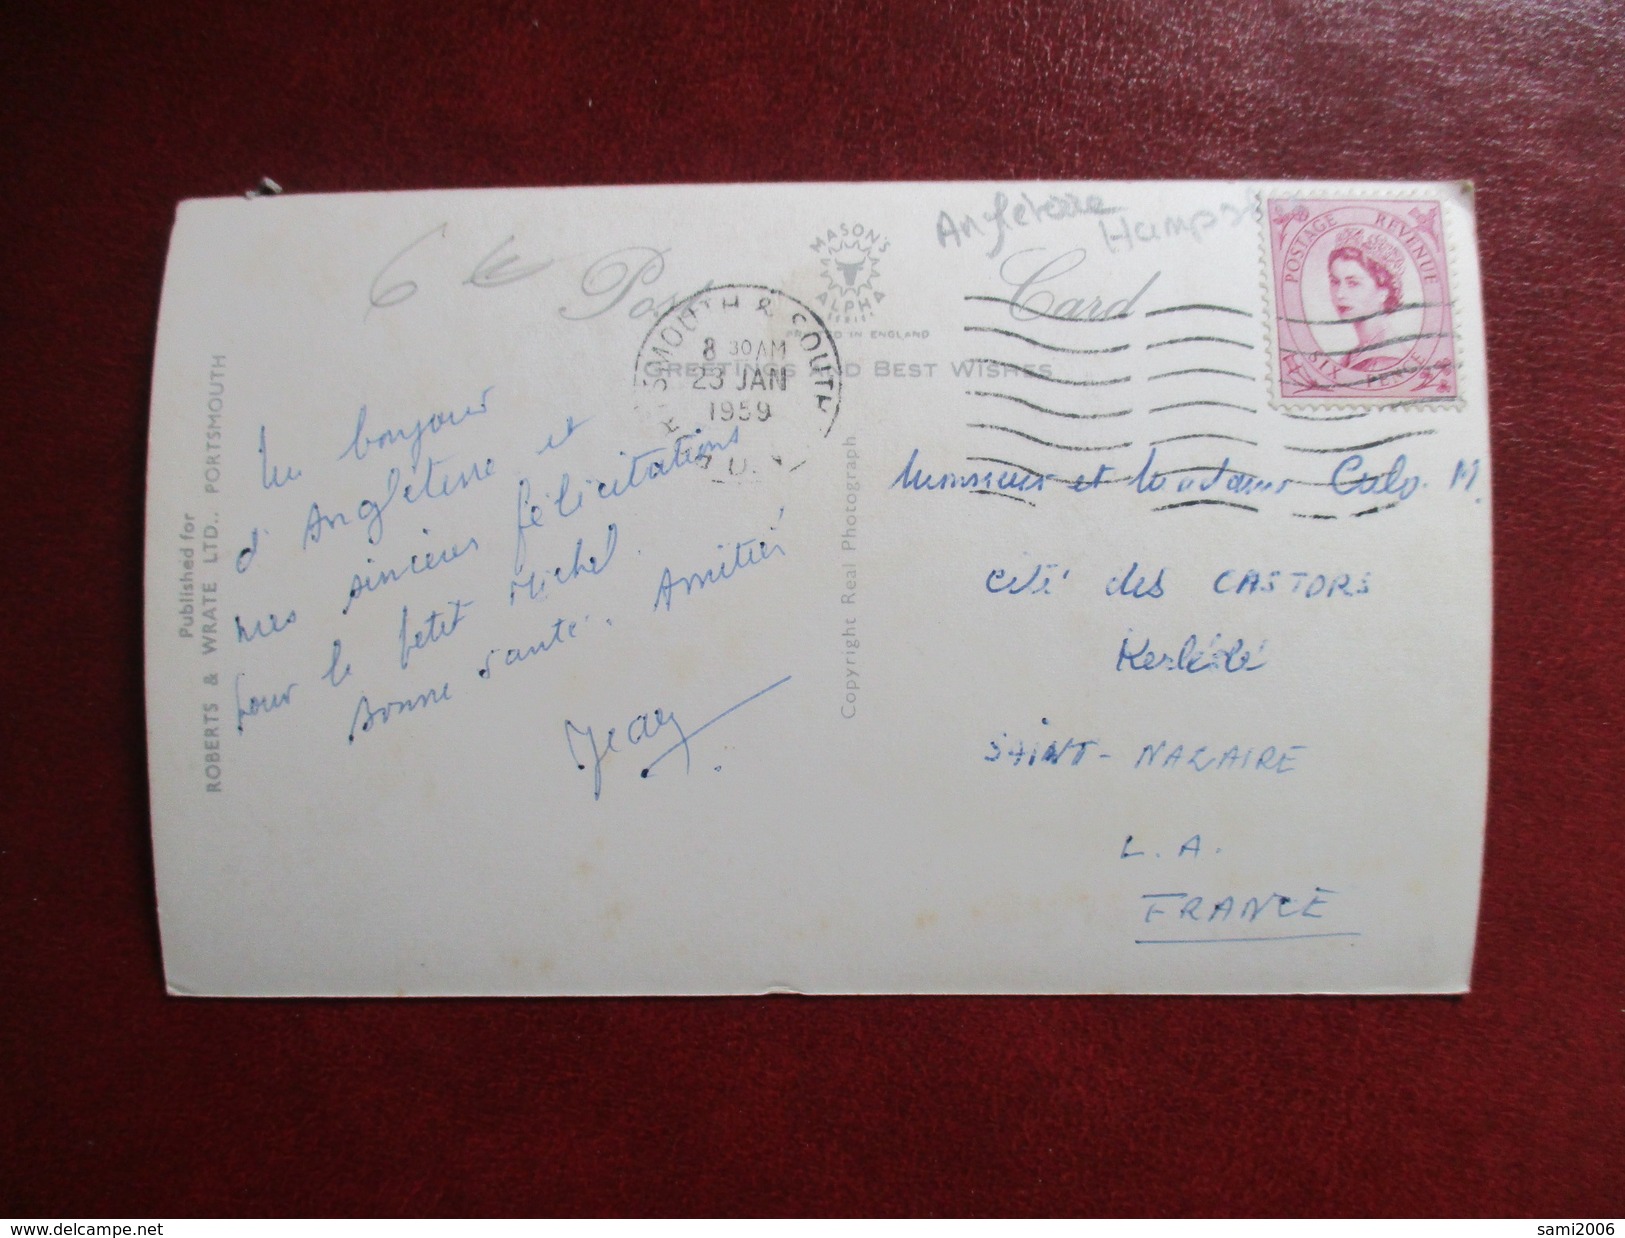 Angleterre
6 €
MASON'S
ALPHA
SERIES
Post Card
IN ENGLAND
POSTAGE REVENUE
SIX PENCE
SMOUTH & SOUTH
8 30AM
23 JAN
1959
GREETINGS AND BEST WISHES
Published for
ROBERTS & WRATE LTD., PORTSMOUTH
Un bonjour
d'Angleterre et
mes sincères félicitations
pour le petit Michel.
Bonne santé. Amitiés
Jean
Copyright Real Photograph
Monsieur et Madame Calo. M.
Cité des CASTORS
Kerlédé
SAINT-NAZAIRE
L. A.
FRANCE
www.delcampe.net
sami2006